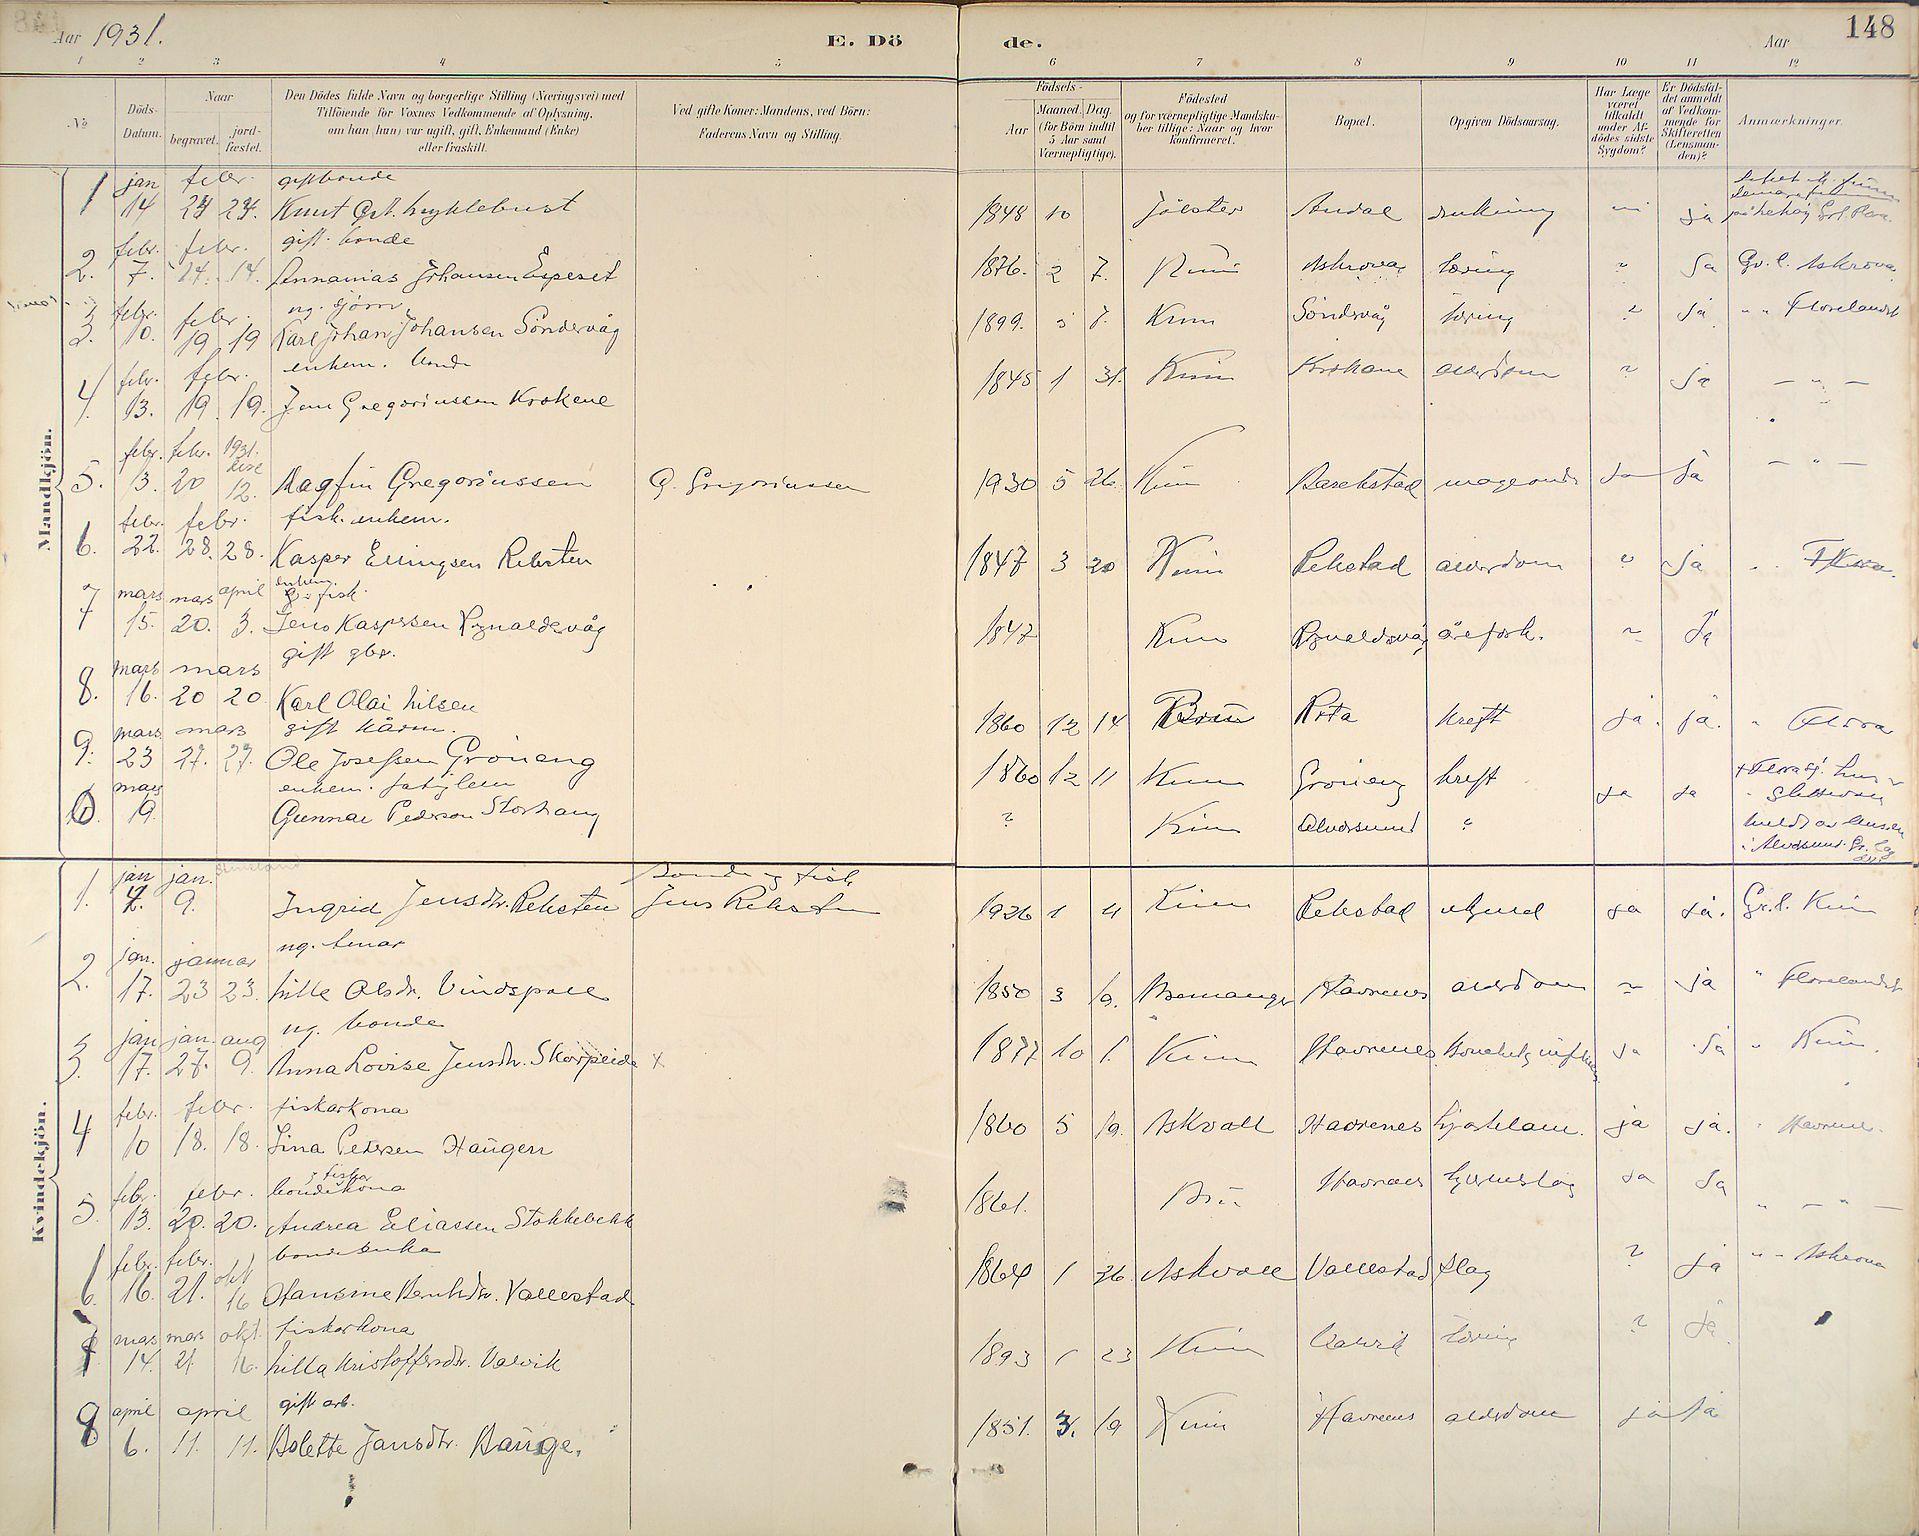 Aar 1931.
E. Dö
de.
Aar
148
1 2 3 4 5 6 7 8 9 10 11 12
No
Döds-Datum.
Naar
begravet.
jord-fæstet.
Den Dödes fulde Navn og borgerlige Stilling (Næringsvei) med
Tilföiende for Voxnes Vedkommende af Oplysning,
om han (hun) var ugift, gift, Enkemand (Enke)
eller fraskilt.
Ved gifte Koner: Mandens, ved Börn:
Faderens Navn og Stilling.
Födsels-
Aar
Maaned. Dag.
(for Börn indtil
5 Aar samt
Værnepligtige).
Födested
og for værnepligtige Mandska-
ber tillige: Naar og hvor
konfirmeret.
Bopæl.
Opgiven Dödsaarsag.
Har Læge
været
tilkaldt
under Af-
dödes sidste
Sygdom?
Er Dödsfal-
det anmeldt
af Vedkom-
mende for
Skifteretten
(Lensman-
den)?
Anmærkninger.
Mandkjön.
jan febr. gift bonde
1 14 24 24. Knut Myklebust 1848 10 Jölster drukning ja
febr. febr. gift. bonde
2. 7. 14. 14. Annanias Johansen Espeset 1876. 2 7. Askrova tæring ? ja Gr. l. Askrova
febr. febr. ug.
3. 10. 19 19 Karl Johan Johansen Söndervåg 1899. 5 7. Kinn Söndervåg tæring ? ja " " Florelandet
febr. febr. enkem. bonde
4. 13. 19. 19. Jens Gregoriussen Krokene 1845 1 31. Kinn Krokane alderdom ? ja — " —
febr. febr. 1931.
5. 13. 20 12. Dagfin Gregoriussen G. Gregoriussen 1930 5 26. Kinn Barekstad mageonde ja ja — " —
febr. febr. fisk. enkem.
6. 22. 28. 28. Kasper Ellingsen Reksten 1847 3 20 Kinn Rekstad alderdom ? ja
mars mars april enkem. fisk.
7 15. 20. 3. Jens Kaspersen Rynaldsvåg 1847 Kinn Rynaldsvåg årefork. ? ja
mars mars gift gbr.
8. 16. 20 20 Karl Olai Nilsen 1860 12 14 Bru kreft ja. ja. " Flora
mars mars gift kårm.
9. 23 27. 27. Ole Josefsen Gröneng 1860 12 11 Kinn Gröneng kreft ja ja
mars enkem.
10 19. Gunnar Pederson Storhaug ? Kinn Alversund ?
Kvindekjön.
jan jan. Bonde og fisk.
1. 4. 9. Ingrid Jensdtr. Reksten Jens Reksten 1926 1 4 Kinn Rekstad ukjend ja ja. Gr. l. Kinn
jan. januar ug. tenar
2. 17. 23 23. Milla Olsdr. Vindspoll 1850 3 19. Bremanger Havrenes alderdom ? ja " Florelandet
jan jan. aug ug. bonde
3. 17. 27. 9. Anna Lovise Jensdtr. Skorpeide x 1877 10 1. Kinn Havrenes ja ja " Kinn.
febr. febr. fiskarkona
4 10 18. 18. Lina Petersen Haugen 1860 5 19. Askvoll Havrenes hjarteslam. ja ja. " Havrenes.
febr. febr. bondekona & fiskar
5. 13. 20. 20. Andrea Eliassen Stokkebekk 1861. Bru Havrenes hjerneslag ja ja " — " —
febr. febr. okt bondeenka
6. 16. 21. 16 Hansine Berntsdtr. Vallestad 1864 1 26. Askvoll Vallestad slag ? ja " " Askrova
mars mars okt. fiskarkona
7 14. 21 16. Milla Kristoffersdtr. Valvik 1893 1 23 Kinn Valvik tæring ? ja.
april april gift arb.
8. 6. 11. 11. Bolette Jansdtr. Hauge. 1851. 3. 19 Kinn Havrenes alderdom ja ja